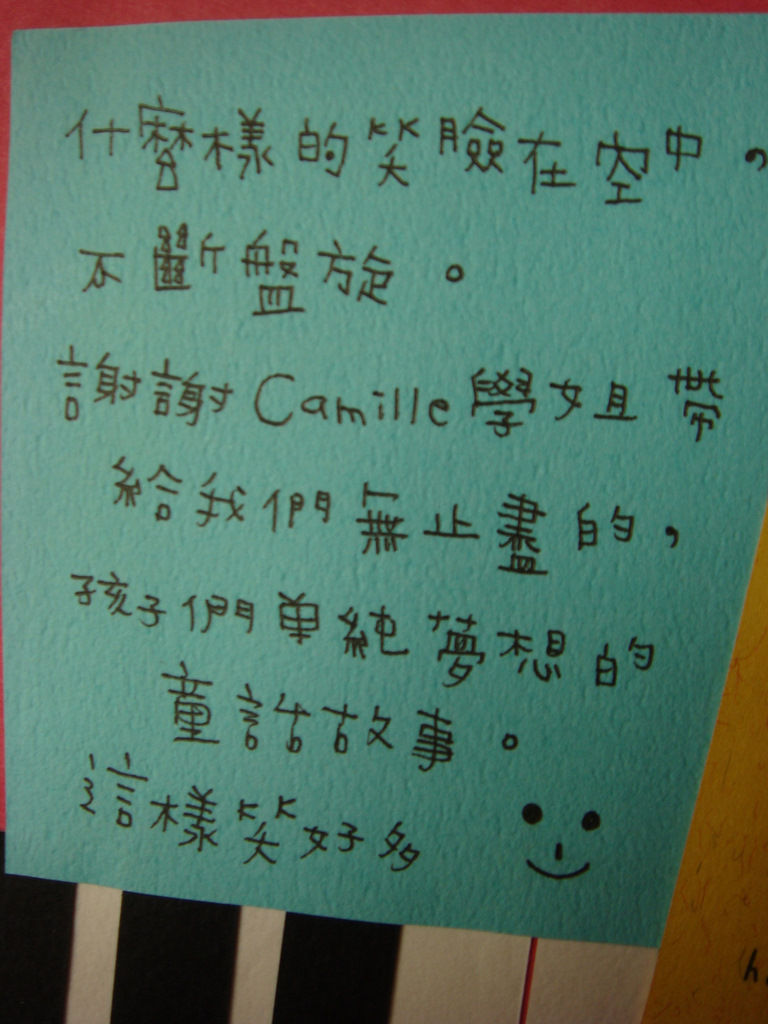 什麼樣的笑臉在空中,
不斷盤旋。
謝謝Camille學姐帶
給我們無止盡的,
孩子們單純夢想的
童話故事。
這樣笑好多